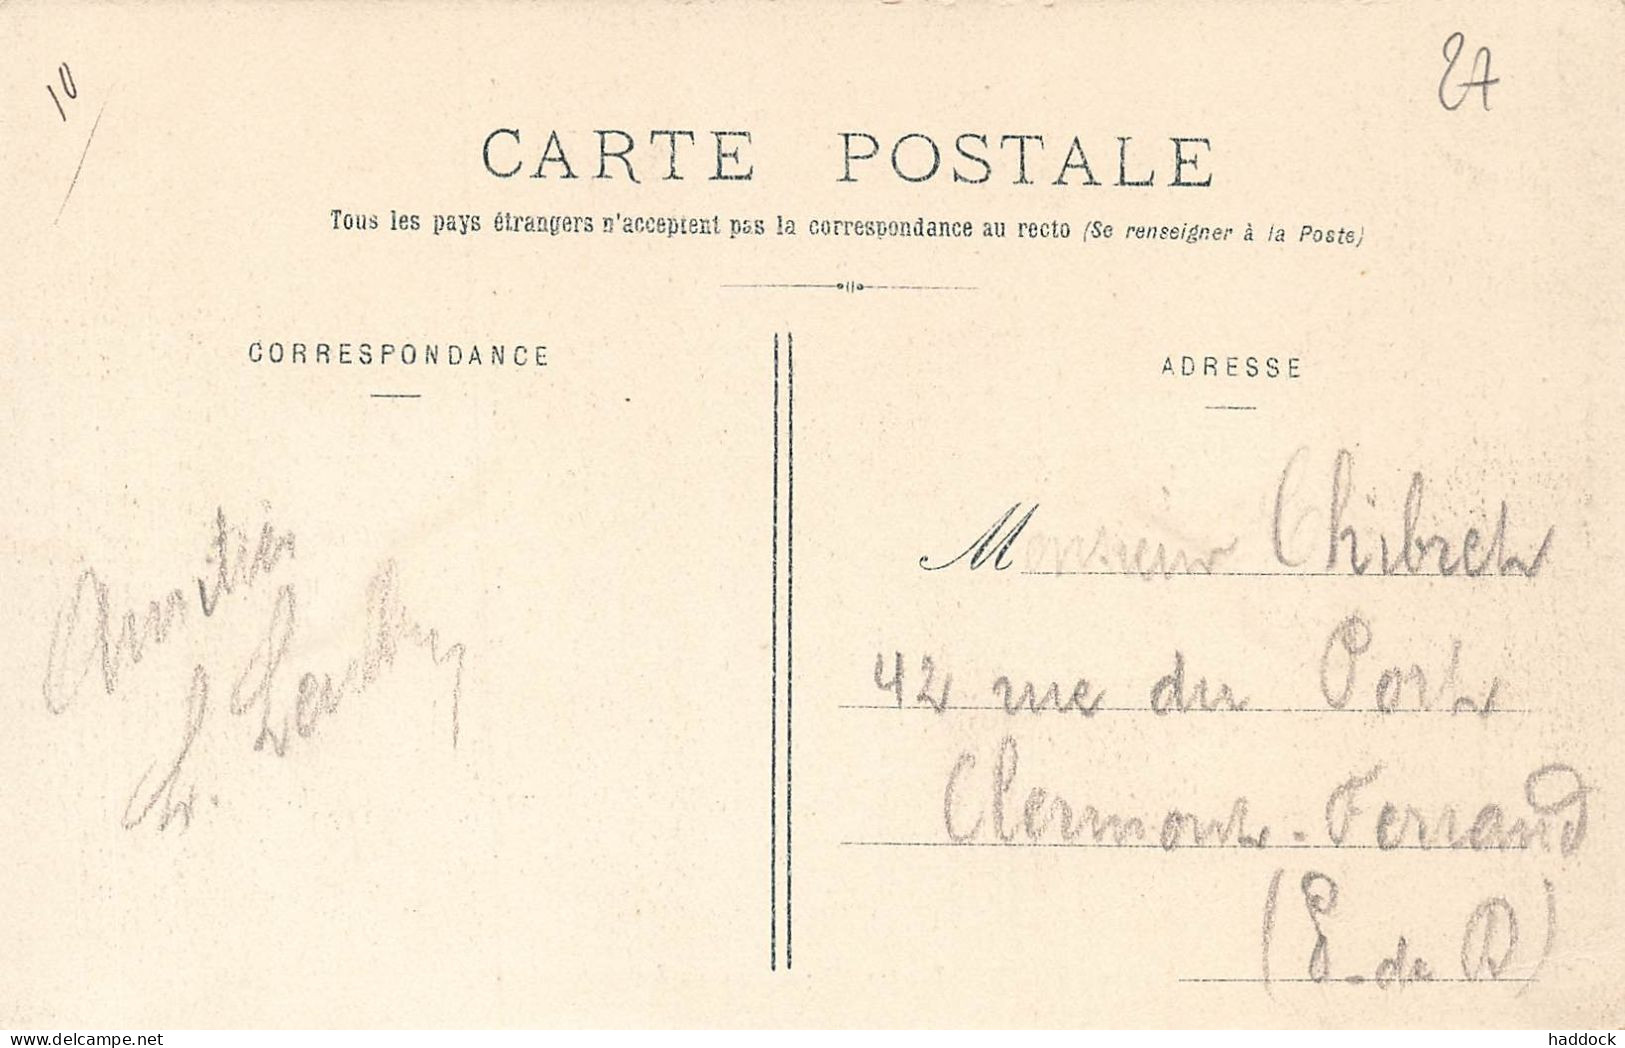 10
27
CARTE POSTALE
Tous les pays étrangers n'acceptent pas la correspondance au recto (Se renseigner à la Poste)
CORRESPONDANCE
ADRESSE
Monsieur Chibret
42 rue du Port
Clermont-Ferrand
(P-de D)
Amitiés
L.
delcampe.net
haddock